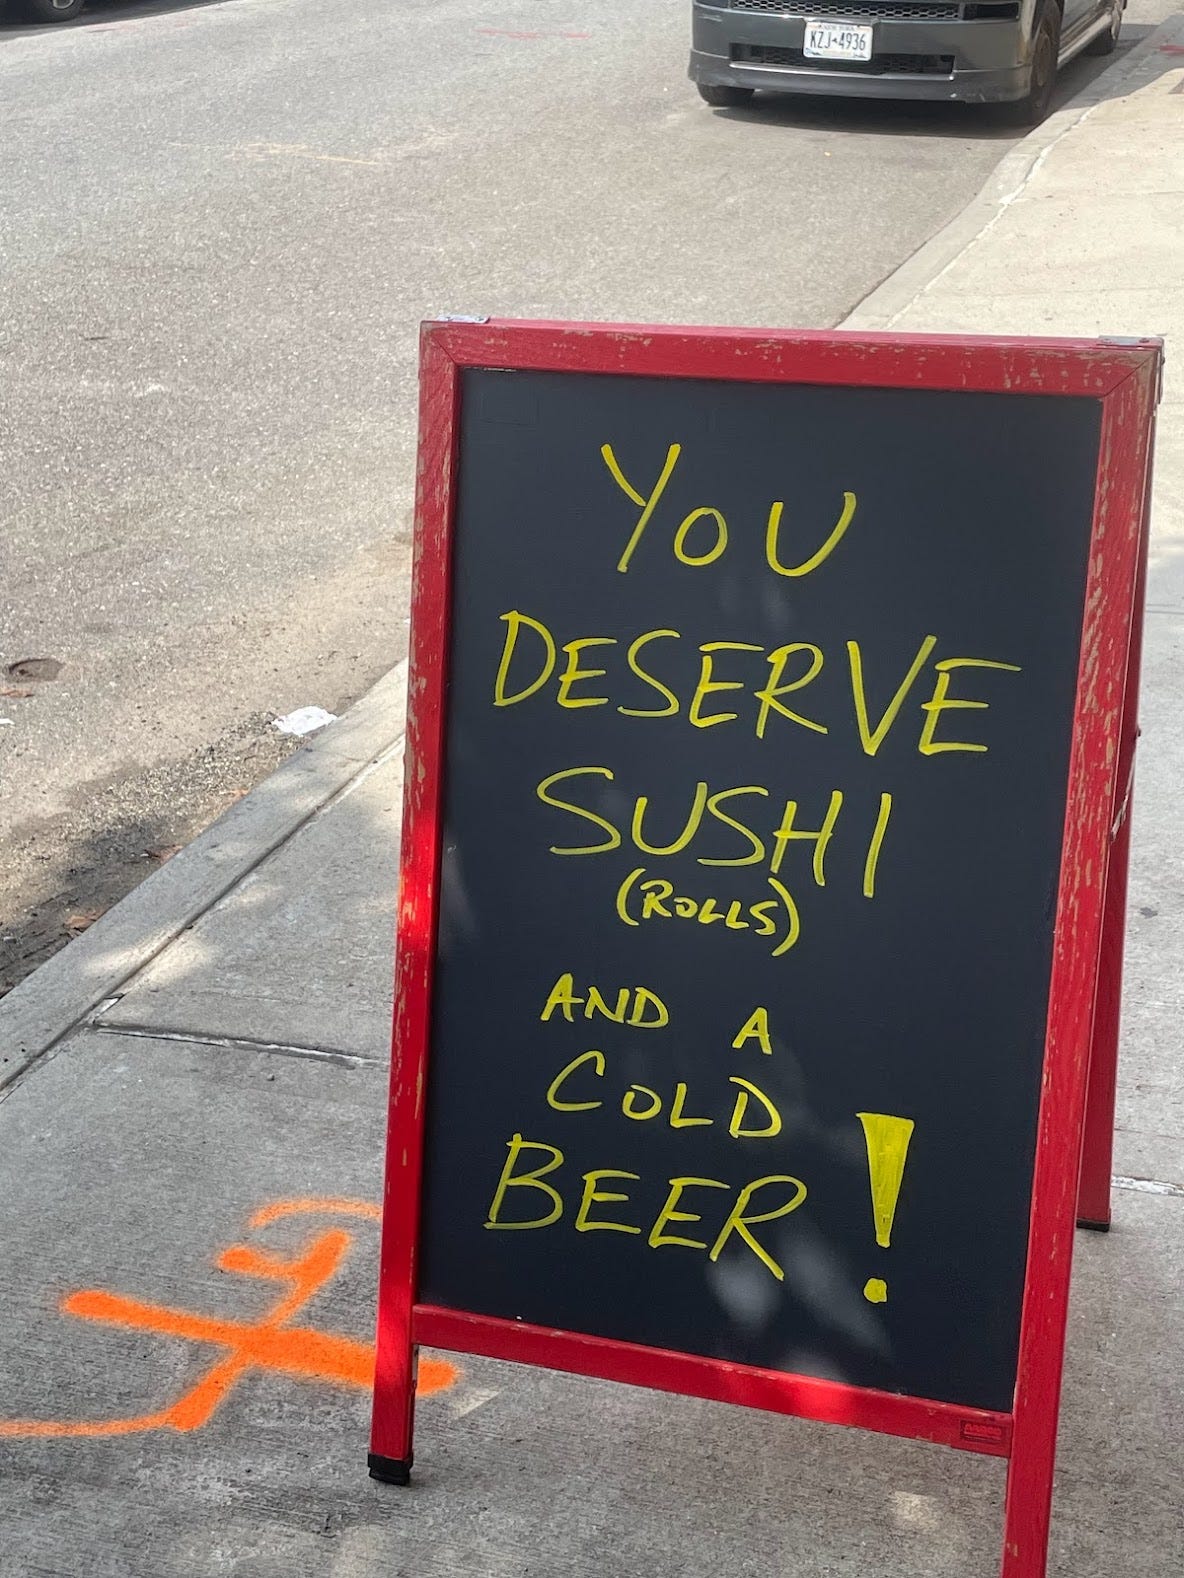 NEW YORK
KZJ 4936
YOU
DESERVE
SUSHI
(ROLLS)
AND A
COLD
BEER!